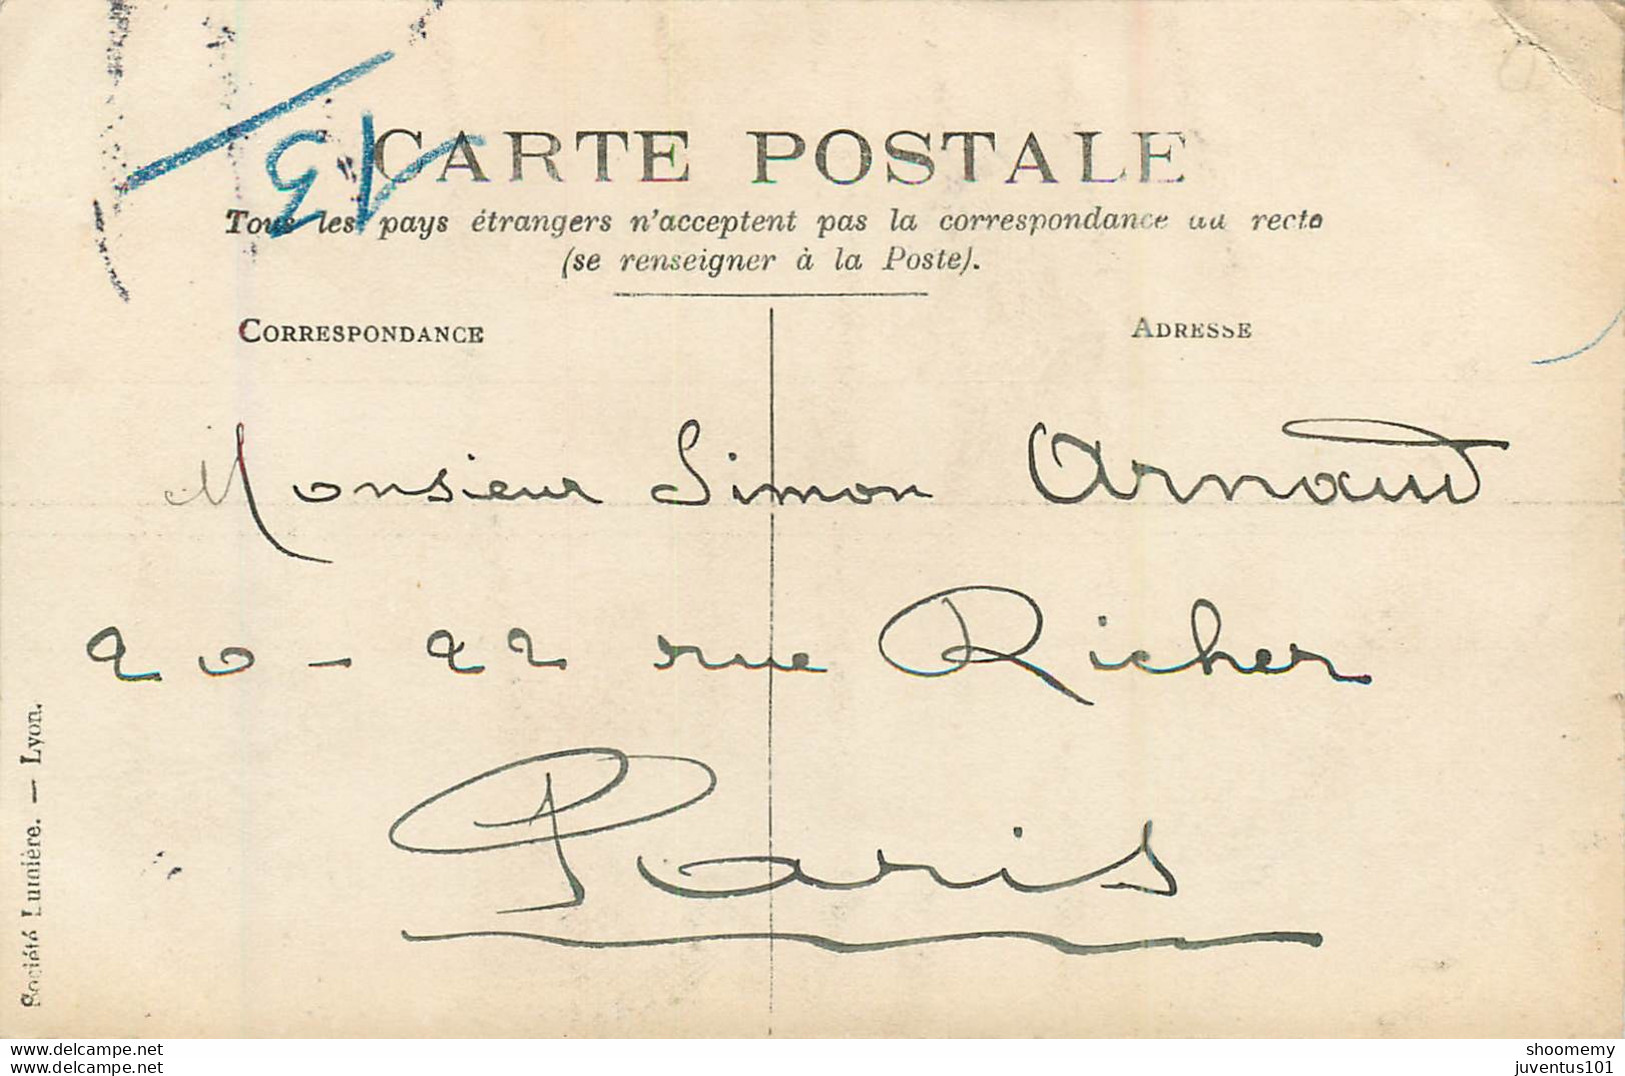 13
CARTE POSTALE
Tous les pays étrangers n'acceptent pas la correspondance au recto
(se renseigner à la Poste).
CORRESPONDANCE
ADRESSE
Monsieur Simon Arnaud
20-22 rue Richer
Paris
Société Lumière. — Lyon.
www.delcampe.net
shoomemy
www.delcampe.net
juventus101